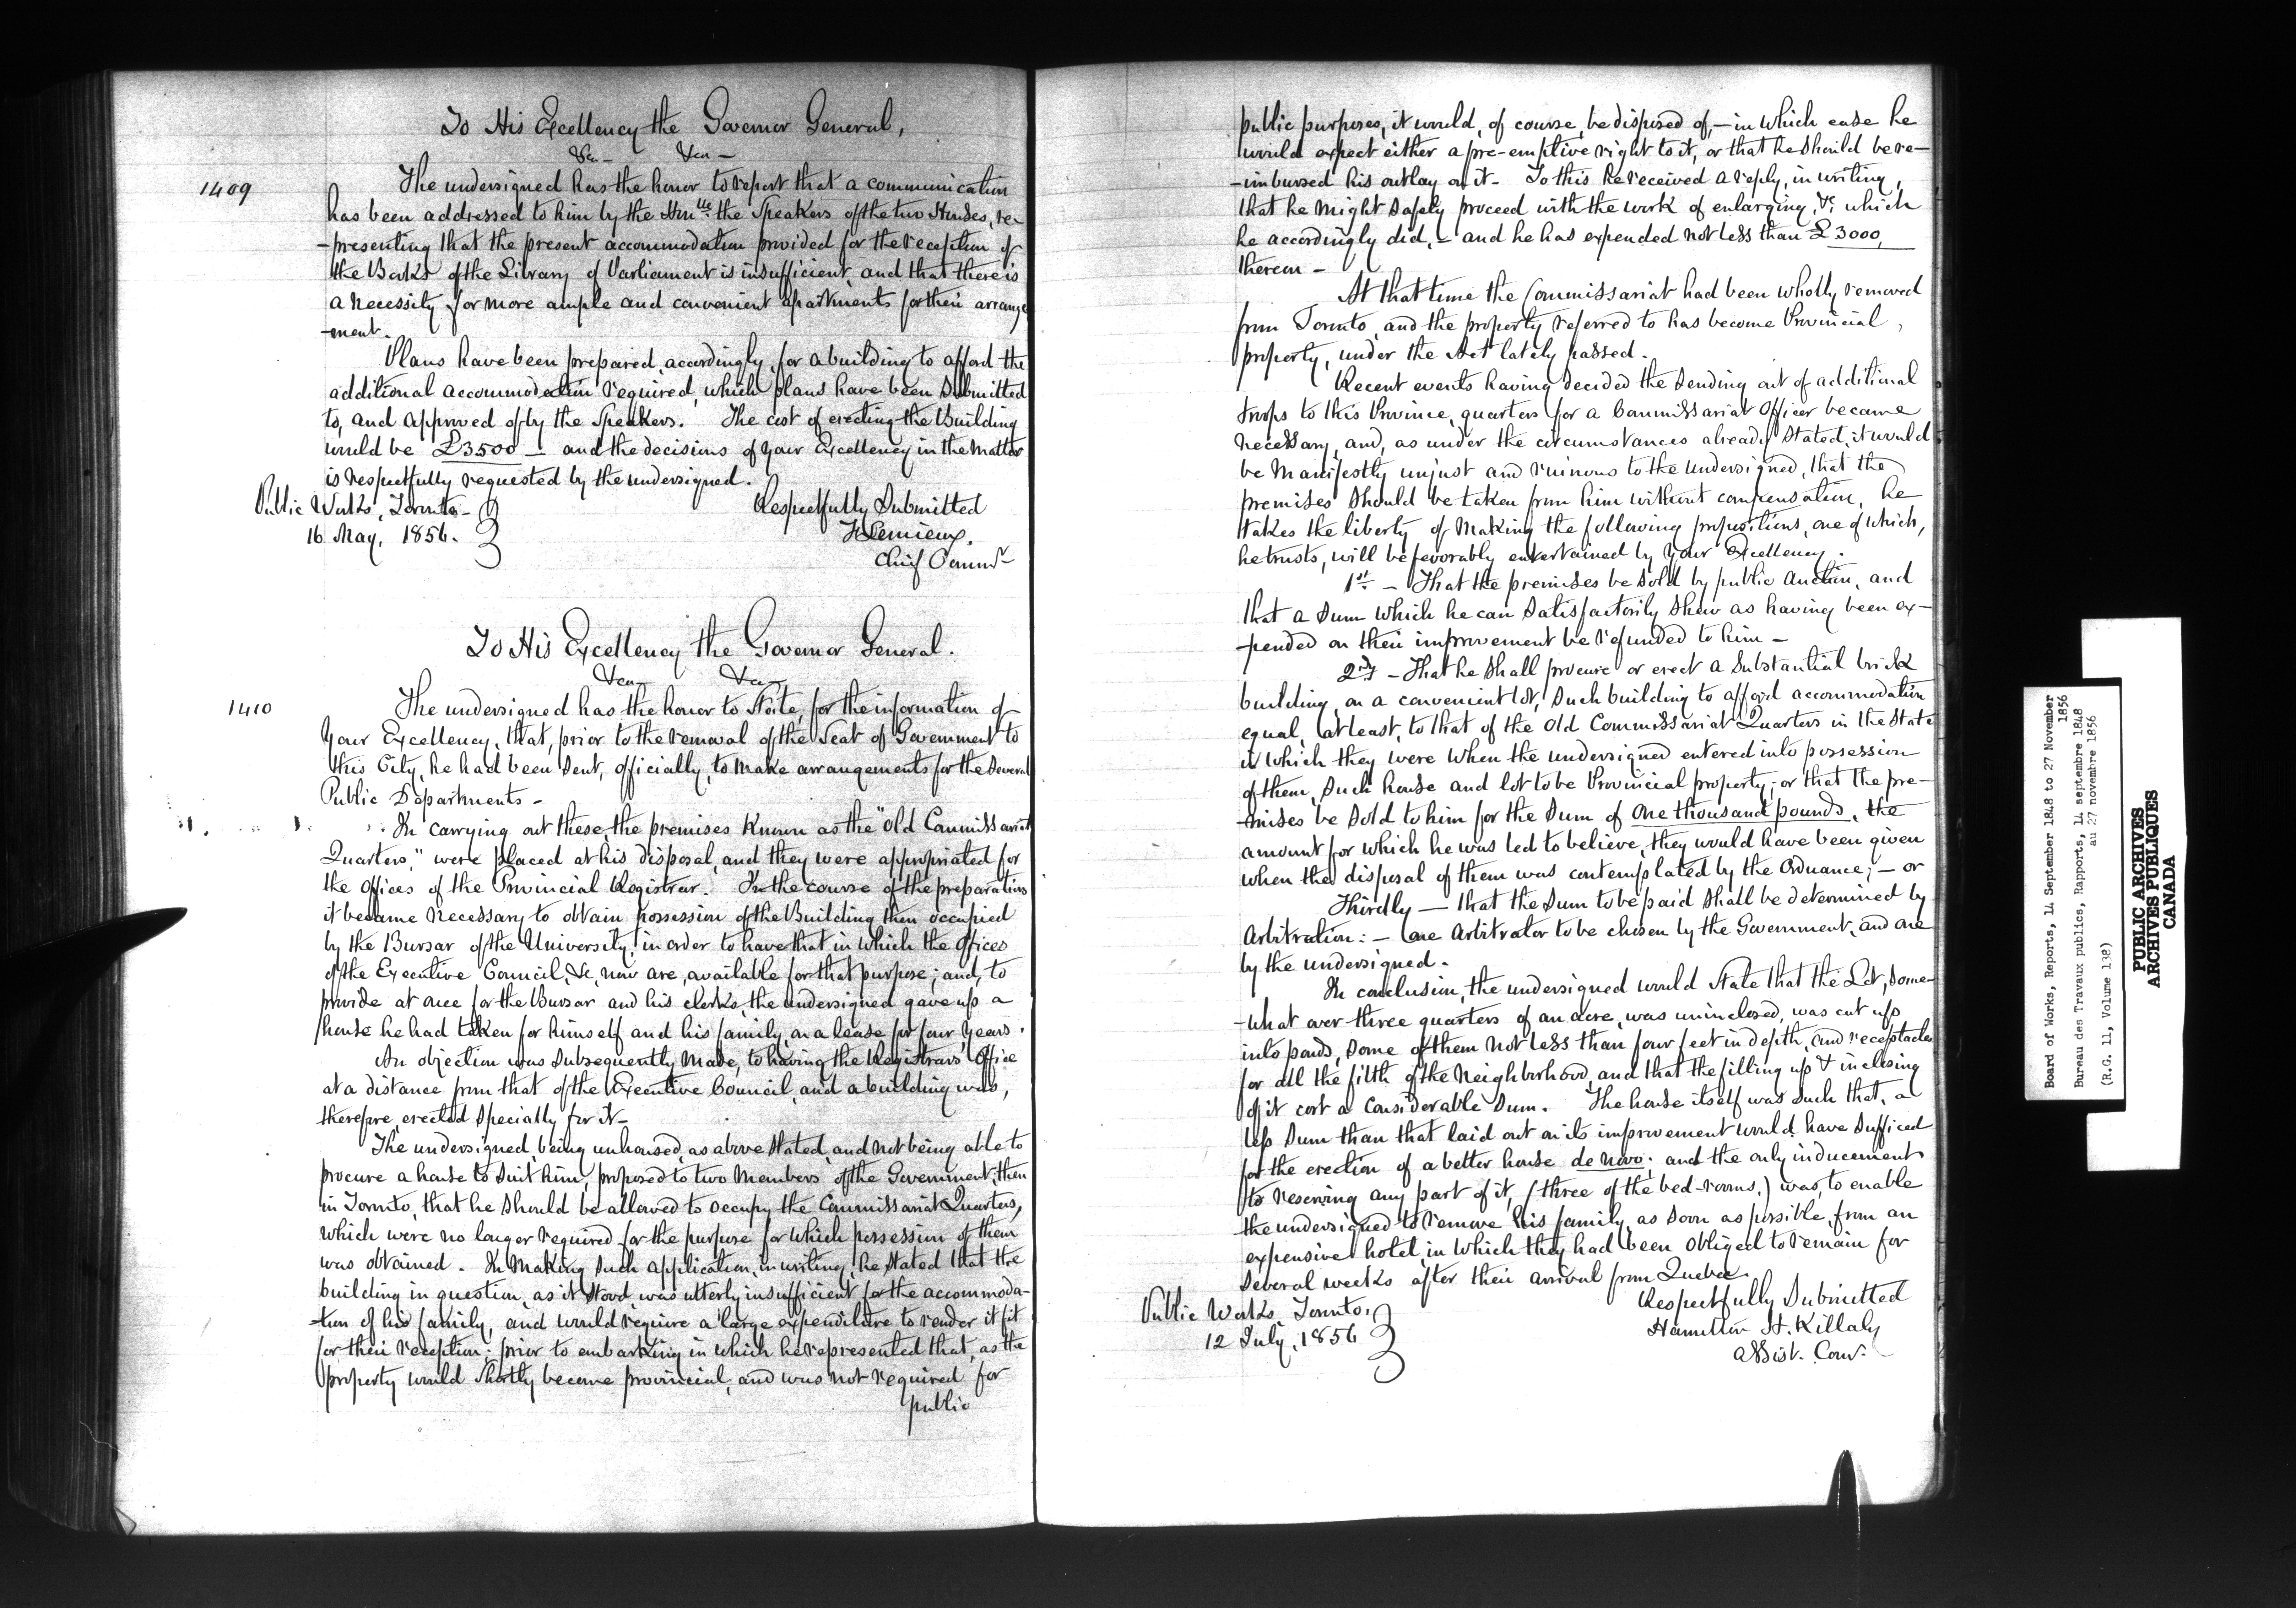 To His Excellency the Governor General,
&c &c
1409
The undersigned has the honor to report that a communication
has been addressed to him by the Honble. the Speakers of the two Houses, re-
-presenting that the present accommodation provided for the reception of
the Books of the Library of Parliament is insufficient and that there is
a necessity for more ample and convenient apartments for their arrange
-ment.
Plans have been prepared, accordingly, for a building to afford the
additional accommodation required, which plans have been submitted
to, and approved of by the Speakers. The cost of erecting the Building
would be £3500 — and the decisions of your Excellency in the matter
is respectfully requested by the undersigned.
Public Works, Toronto
16 May, 1856.
Respectfully Submitted
F Lemieux.
Chief Commr
To His Excellency the Governor General.
&c &c
1410
The undersigned has the honor to State, for the information of
Your Excellency, that, prior to the removal of the Seat of Government to
this City, he had been sent, officially, to make arrangements for the several
Public Departments -
In carrying out these, the premises known as the "Old Commissariat
Quarters," were placed at his disposal, and they were appropriated for
the Offices of the Provincial Registrar. In the course of the preparations
it became necessary to obtain possession of the Building then occupied
by the Bursar of the University, in order to have that in which the Offices
of the Executive Council, &c, now are, available for that purpose; and, to
provide at once for the Bursar and his clerks, the undersigned gave up a
house he had taken for himself and his family, on a lease for four years.
An objection was subsequently made, to having the Registrar's Office
at a distance from that of the Executive Council, and a building was,
therefore, erected specially for it -
The undersigned, being unhoused, as above stated, and not being able to
procure a house to suit him, proposed to two Members of the Government, then
in Toronto, that he should be allowed to occupy the Commissariat Quarters,
which were no longer required for the purpose for which possession of them
was obtained. In making such application, in writing, he stated that the
building in question, as it stood, was utterly insufficient for the accommoda-
-tion of his family, and would require a large expenditure to render it fit
for their reception; prior to embarking in which he represented that, as the
property would shortly become provincial, and was not required for
public
public purposes, it would, of course, be disposed of, — in which case he
would expect either a pre-emptive right to it, or that he should be re-
-imbursed his outlay on it - To this he received a reply, in writing,
that he might safely proceed with the work of enlarging, &c, which
he accordingly did, — and he has expended not less than £3000,
thereon -
At that time the Commissariat had been wholly removed
from Toronto, and the property referred to has become Provincial
property, under the Act lately passed.
Recent events having decided the sending out of additional
troops to this Province, quarters for a Commissariat Officer became
necessary, and, as under the circumstances already stated, it would
be manifestly unjust and ruinous to the undersigned, that the
premises should be taken from him without compensation, he
takes the liberty of making the following propositions, one of which,
he trusts, will be favorably entertained by Your Excellency.
1st. - That the premises be sold by public auction, and
that a sum which he can satisfactorily shew as having been ex-
-pended on their improvement be refunded to him -
2ndly - That he shall procure or erect a substantial brick
building, on a convenient lot, such building to afford accommodation
equal, at least, to that of the Old Commissariat Quarters in the state
in which they were when the undersigned entered into possession
of them, such house and lot to be Provincial property; or that the pre-
-mises be sold to him for the sum of one thousand pounds, the
amount for which he was led to believe, they would have been given
when the disposal of them was contemplated by the Ordnance; — or
Thirdly — that the sum to be paid shall be determined by
Arbitration: — one Arbitrator to be chosen by the Government, and one
by the undersigned.
In conclusion, the undersigned would state that the Lot, some-
-what over three quarters of an acre, was uninclosed, was cut up
into ponds, some of them not less than four feet in depth, and receptacles
for all the filth of the neighborhood, and that the filling up & inclosing
of it cost a considerable sum. The house itself was such that, a
less sum than that laid out on its improvement would have sufficed
for the erection of a better house de novo; and the only inducement
to reserving any part of it, (three of the bed-rooms,) was, to enable
the undersigned to remove his family, as soon as possible, from an
expensive hotel, in which they had been obliged to remain for
several weeks after their arrival from Quebec.
Public Works, Toronto,
12 July, 1856
Respectfully Submitted
Hamilton H. Killaly
Assist. Comr.
Board of Works, Reports, 14 September 1848 to 27 November
1856
Bureau des Travaux publics, Rapports, 14 septembre 1848
au 27 novembre 1856
(R.G. 11, Volume 138)
PUBLIC ARCHIVES
ARCHIVES PUBLIQUES
CANADA